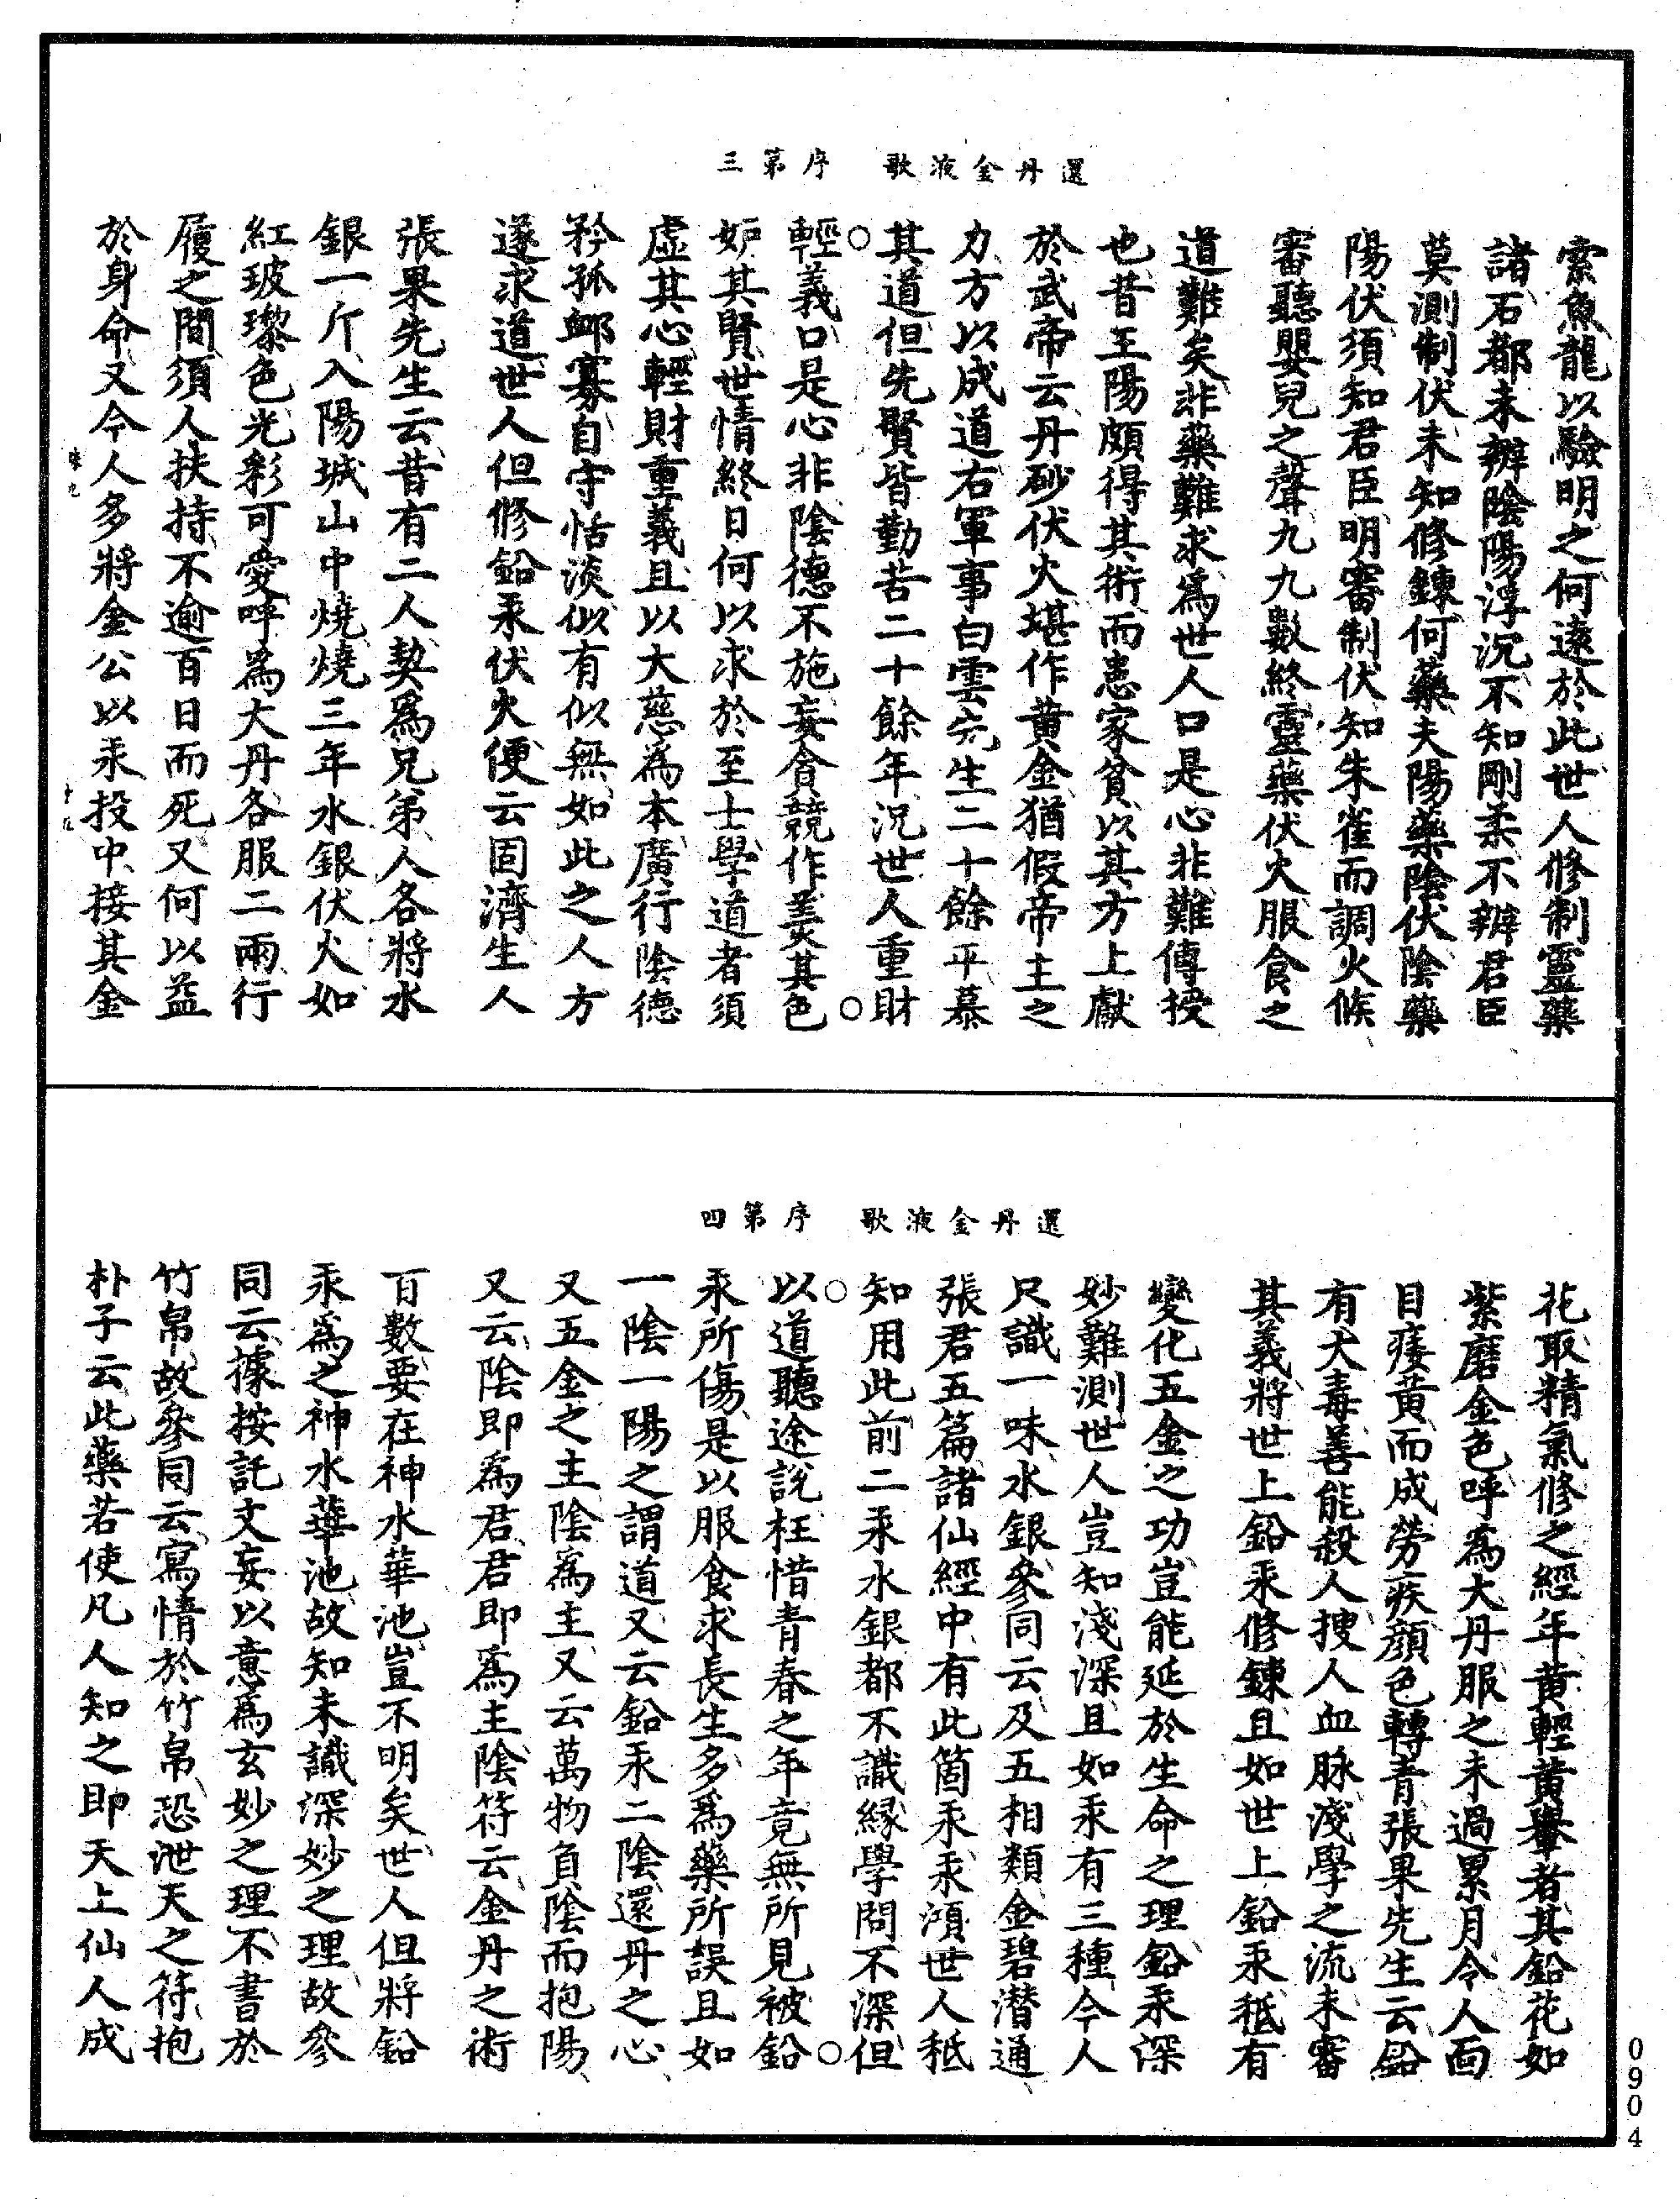 還丹金液歌 序 第三
索魚龍以驗明之何遠於此世人修制靈藥
諸石都未辯陰陽浮沉不知剛柔不辯君臣
莫測制伏未知修鍊何藥夫陽藥陰伏陰藥
陽伏須知君臣明審制伏知朱雀而調火候
審聽嬰兒之聲九九數終靈藥伏火服食之
道難矣非藥難求為世人口是心非難傳授
也昔王陽頗得其術而患家貧以其方上獻
於武帝云丹砂伏火堪作黃金猶假帝主之
力方以成道右軍事白雲先生二十餘年慕
其道但先賢皆勤苦二十餘年況世人重財
輕義口是心非陰德不施妄貪競作羨其色
妒其賢世情終日何以求於至士學道者須
虛其心輕財重義且以大慈為本廣行陰德
矜孤卹寡自守恬淡似有似無如此之人方
遂求道世人但修鉛汞伏火便云固濟生人
張果先生云昔有二人契為兄弟人各將水
銀一斤入陽城山中燒燒三年水銀伏火如
紅玻瓈色光彩可愛呼為大丹各服二兩行
履之間須人扶持不逾百日而死又何以益
於身命又今人多將金公以汞投中接其金
還丹金液歌 序 第四
花取精氣修之經年黃輕黃轝者其鉛花如
紫磨金色呼為大丹服之未過累月令人面
目痿黃而成勞疾顏色轉青張果先生云鉛
有大毒善能殺人搜人血脉淺學之流未審
其義將世上鉛汞修鍊且如世上鉛汞秪有
變化五金之功豈能延於生命之理鉛汞深
妙難測世人豈知淺深且如汞有三種今人
只識一味水銀參同云及五相類金碧潛通
張君五篇諸仙經中有此箇汞汞澒世人秪
知用此前二汞水銀都不識緣學問不深但
以道聽途說枉惜青春之年竟無所見被鉛
汞所傷是以服食求長生多為藥所誤且如
一陰一陽之謂道又云鉛汞二陰還丹之心
又五金之主陰為主又云萬物負陰而抱陽
又云陰即為君君即為主陰符云金丹之術
百數要在神水華池豈不明矣世人但將鉛
汞為之神水華池故知未識深妙之理故參
同云據按託文妄以意為玄妙之理不書於
竹帛故參同云寫情於竹帛恐泄天之符抱
朴子云此藥若使凡人知之即天上仙人成
0904